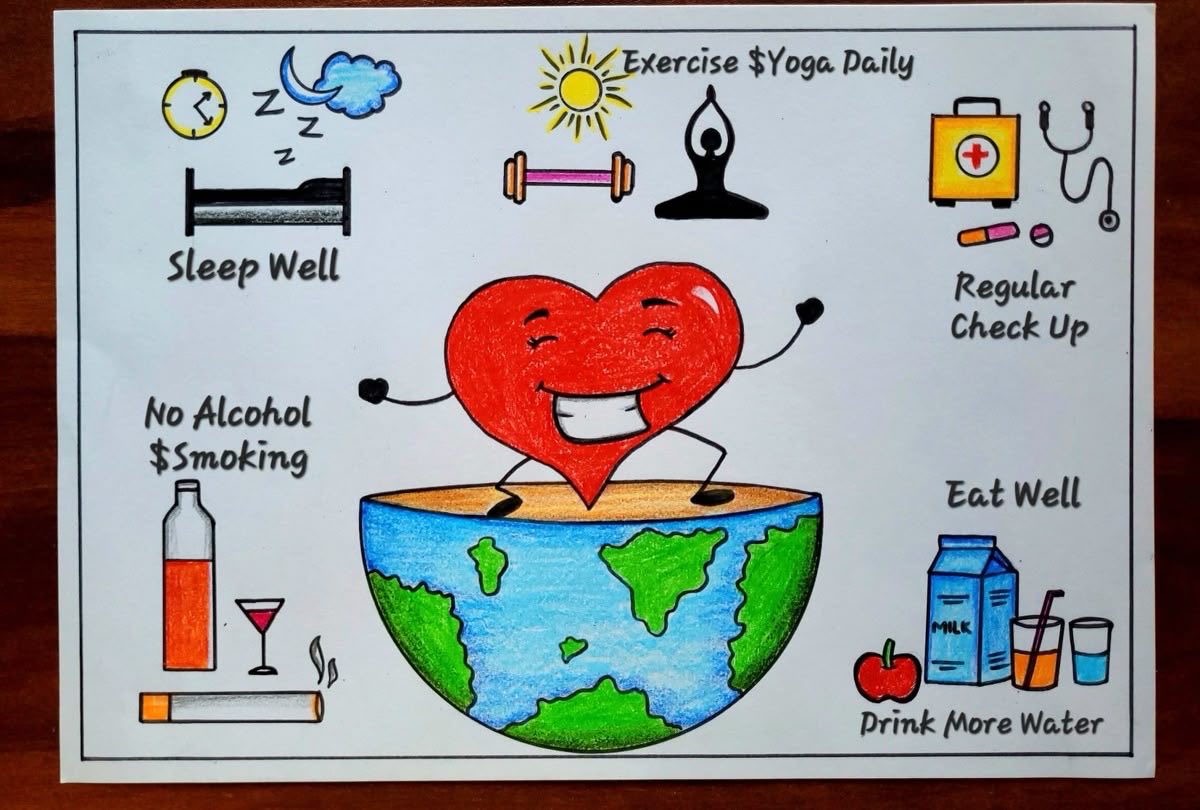 Exercise $Yoga Daily
Z
Z
Z
Sleep Well
Regular
Check Up
No Alcohol
$Smoking
Eat Well
MILK
Drink More Water